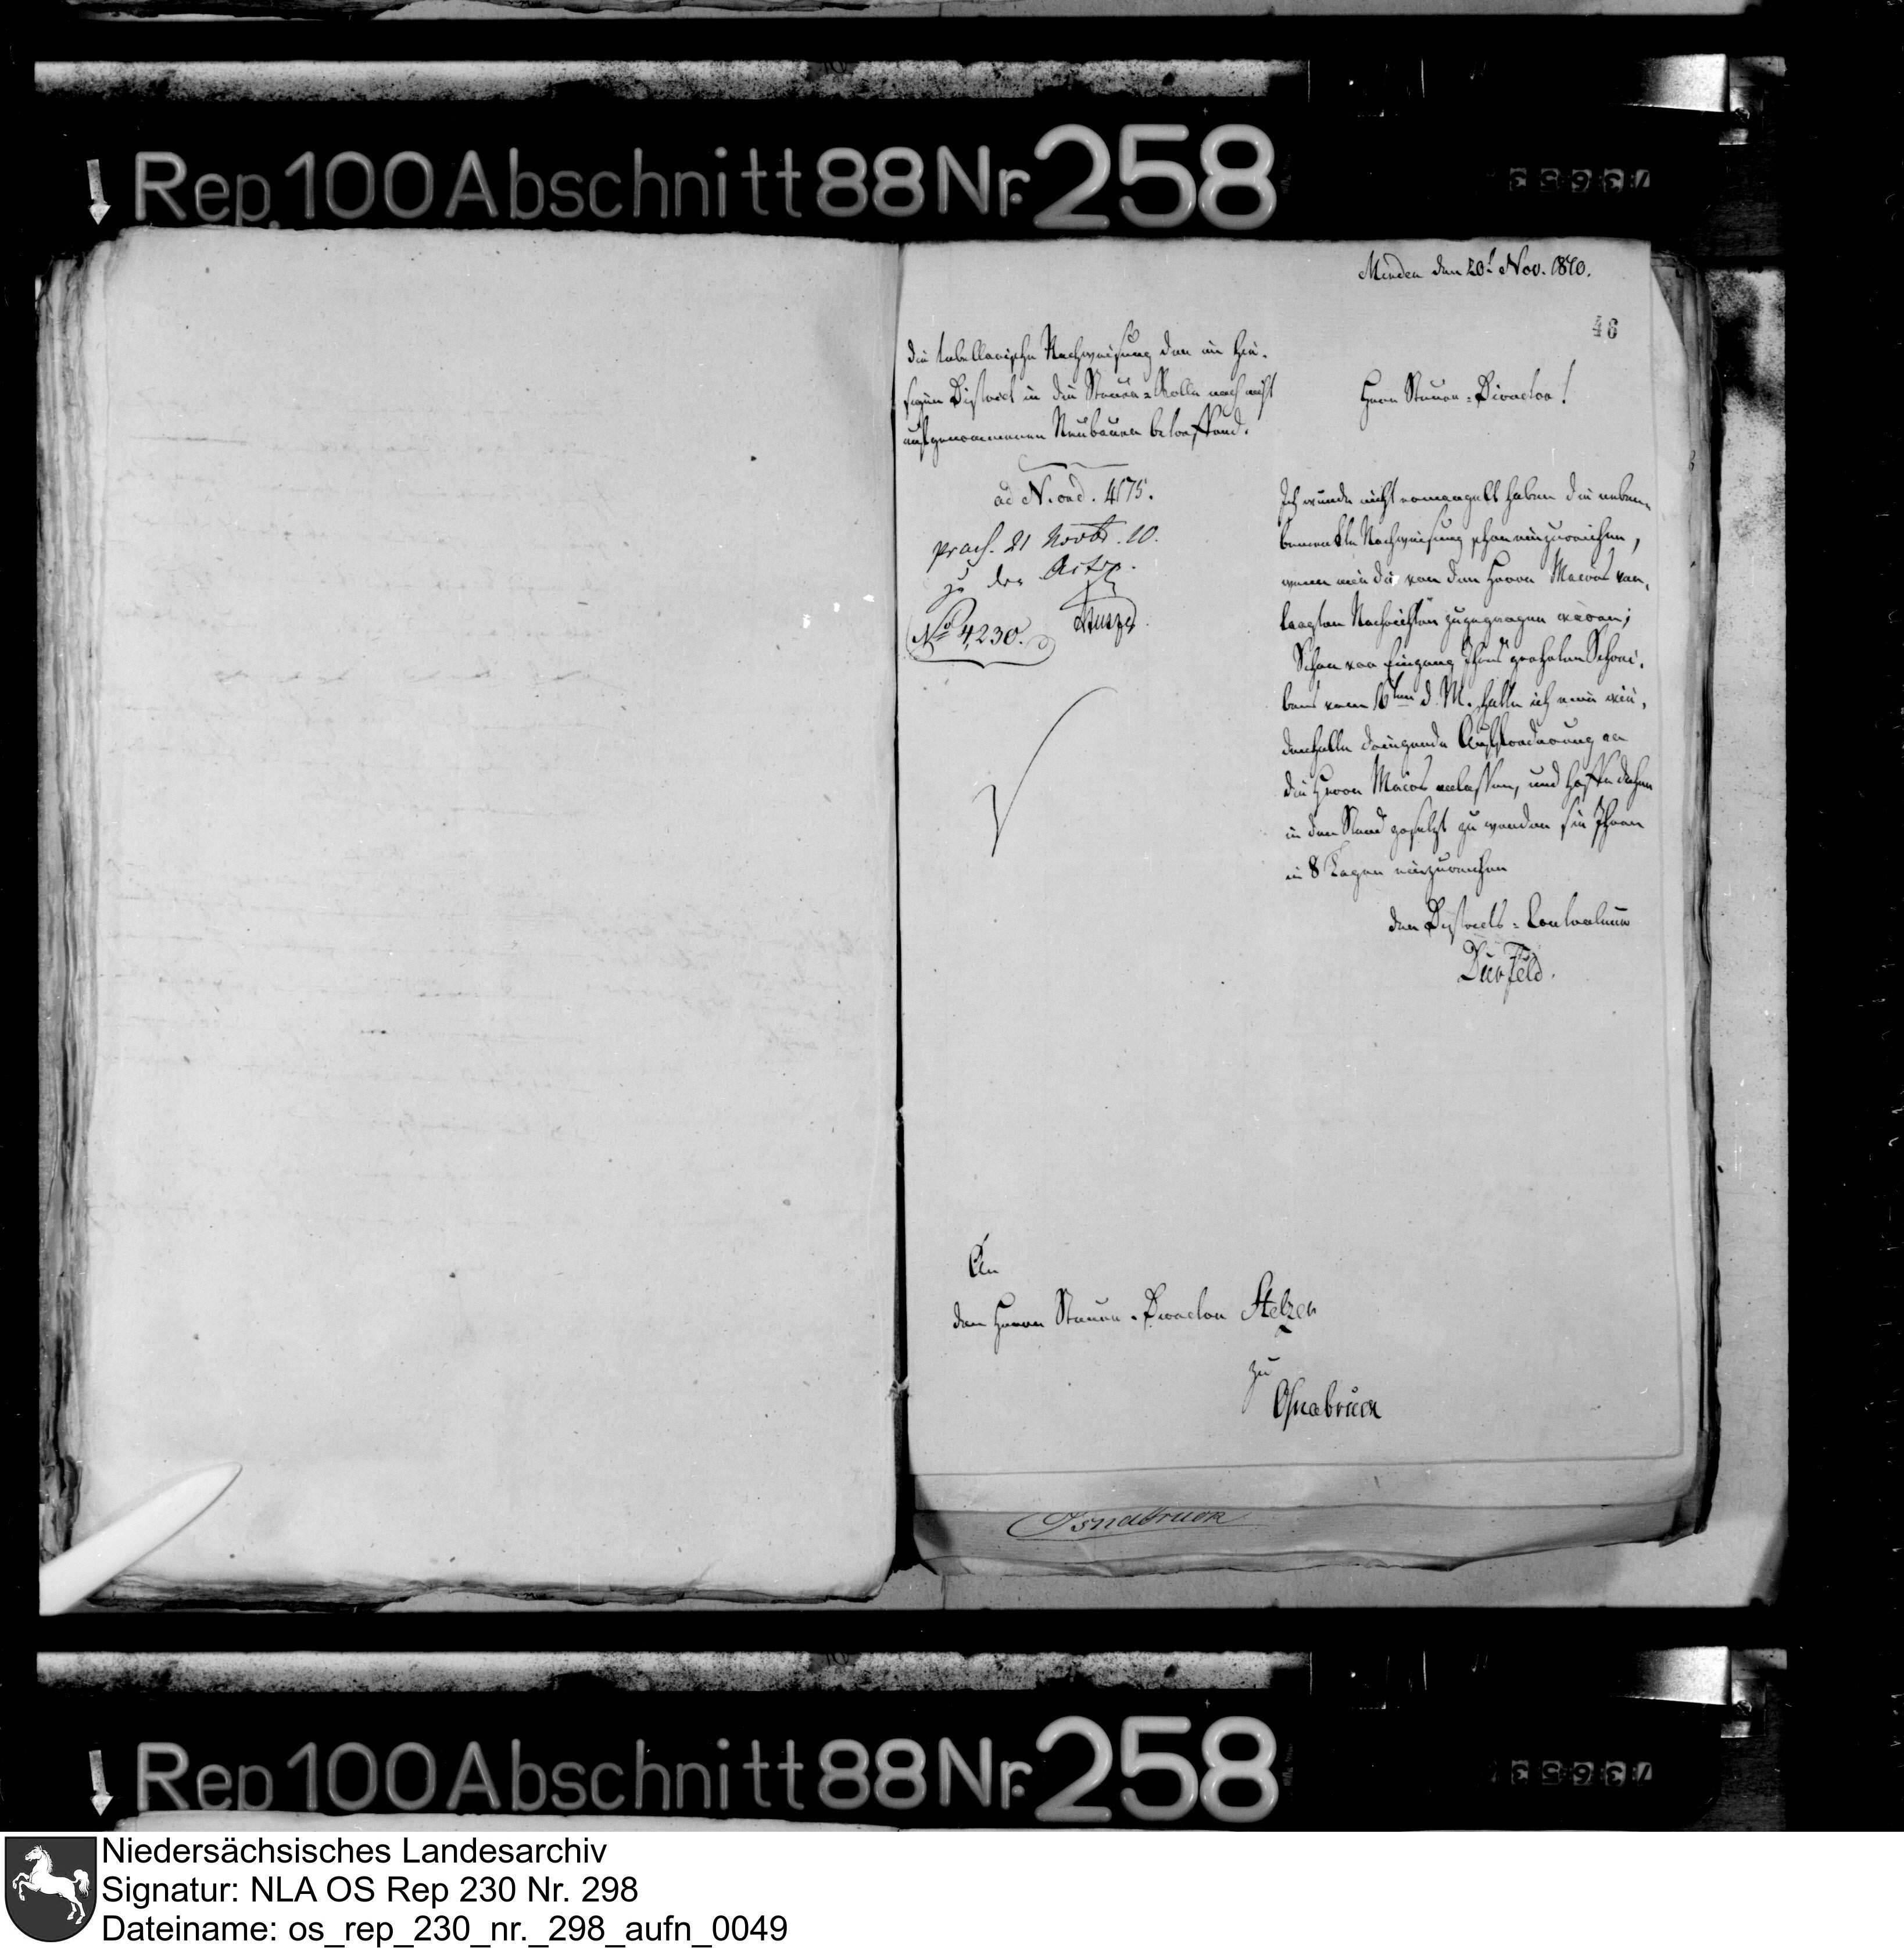 Rep. 100 Abschnitt 88 Nr. 258
Minden den 20t Nov. 1810.
48
die tabellarische Nachweisung der im hie-
sigen District in die Steuer-Rolle noch nicht
aufgenommenen Neubauer betreffend.
ad N. ord. 4175.
praes. 21 Novbr. 10.
zu den Acten.
No 4230.
Herr Steuer-Director!
Ich würde nicht ermangelt haben die neben-
bemerkte Nachweisung schon einzureichen,
wenn mir die von den Herrn Maires ver-
langten Nachrichten zugegangen wären;
Schon vor Eingang Ihres geehrten Schrei-
bens vom 16ten d. M. hatte ich eine wie-
derholte dringende Aufforderung an
die Herrn Maires erlassen, und hoffe daher
in den Stand gesetzt zu werden sie Ihnen
in 8 Tagen einzureichen
der Districts-Controleur
Dürfeld.
An
den Herrn Steuer-Director Stelzer
zu
Osnabrück
Osnabrück
Rep 100 Abschnitt 88 Nr. 258
Niedersächsisches Landesarchiv
Signatur: NLA OS Rep 230 Nr. 298
Dateiname: os_rep_230_nr._298_aufn_0049